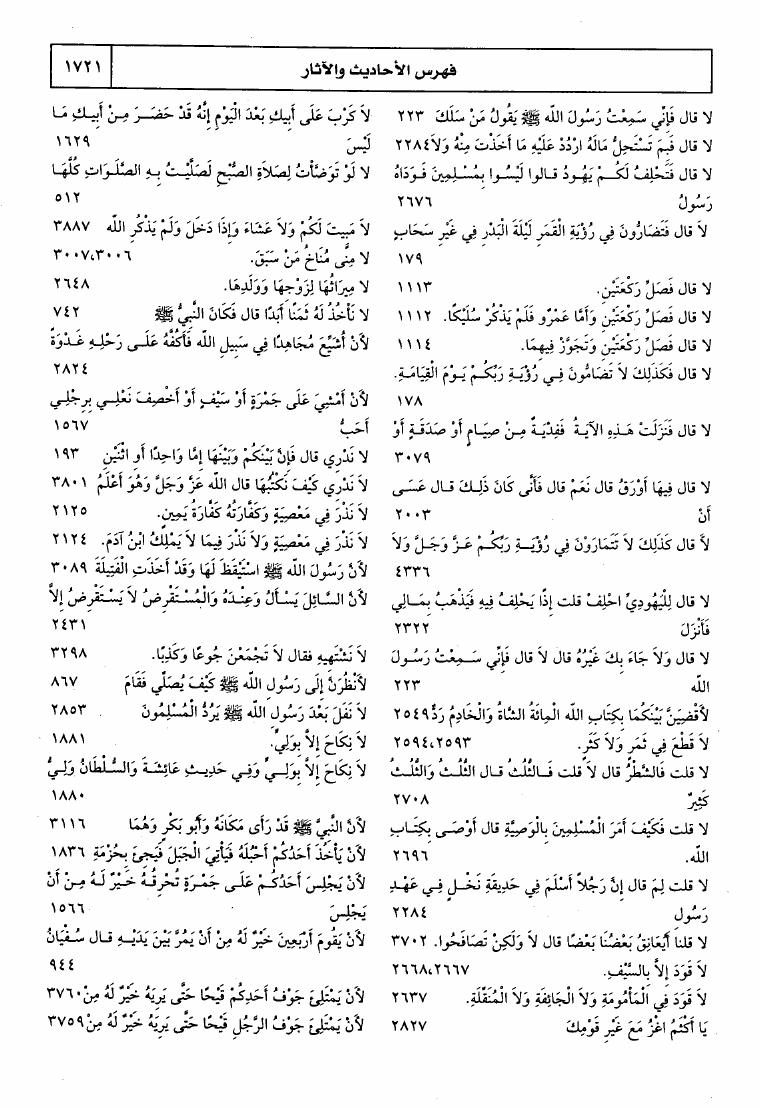 فهرس الأحاديث والآثار
١٧٢١
لا قال فَإِنِّي سَمِعْتُ رَسُولَ الله ﷺ يَقُولُ مَنْ سَلَكَ ٢٢٣
لا قال فَبِمَ تَسْتَحِلُّ مَالَهُ ارْدُدْ عَلَيْهِ مَا أَخَذْتَ مِنْهُ وَلاَ ٢٢٨٤
لا قال فَتَحْلِفُ لَكُمْ يَهُودُ قالوا لَيْسُوا بِمُسْلِمِينَ فَوَدَاهُ
رَسُولُ ٢٦٧٦
لاَ قال فَتَضَارُّونَ فِي رُؤْيَةِ الْقَمَرِ لَيْلَةَ الْبَدْرِ فِي غَيْرِ سَحَابٍ
١٧٩
لا قال فَصَلِّ رَكْعَتَيْنِ. ١١١٣
لا قال فَصَلِّ رَكْعَتَيْنِ وَأَمَّا عَمْرٌو فَلَمْ يَذْكُرْ سُلَيْكًا. ١١١٢
لا قال فَصَلِّ رَكْعَتَيْنِ وَتَجَوَّزْ فِيهِمَا. ١١١٤
لا قال فَكَذَلِكَ لاَ تَضَامُّونَ فِي رُؤْيَةِ رَبِّكُمْ يَوْمَ الْقِيَامَةِ.
١٧٨
لا قال فَنَزَلَتْ هَذِهِ الآيَةُ فَفِدْيَةٌ مِنْ صِيَامٍ أَوْ صَدَقَةٍ أَوْ
٣٠٧٩
لا قال فِيهَا أَوْرَقُ قال نَعَمْ قال فَأَنَّى كَانَ ذَلِكَ قال عَسَى
أَنْ ٢٠٠٣
لاَ قال كَذَلِكَ لاَ تَتَمَارَوْنَ فِي رُؤْيَةِ رَبِّكُمْ عَزَّ وَجَلَّ وَلاَ
٤٣٣٦
لا قال لِلْيَهُودِيِّ احْلِفْ قلت إِذًا يَحْلِفُ فِيهِ فَيَذْهَبُ بِمَالِي
فَأَنْزَلَ ٢٣٢٢
لا قال وَلاَ جَاءَ بِكَ غَيْرُهُ قال لاَ قال فَإِنِّي سَمِعْتُ رَسُولَ
الله ٢٢٣
لأَقْضِيَنَّ بَيْنَكُمَا بِكِتَابِ الله الْمِائَةُ الشَّاةُ وَالْخَادِمُ رَدٌّ ٢٥٤٩
لاَ قَطْعَ فِي ثَمَرٍ وَلاَ كَثَرٍ. ٢٥٩٤،٢٥٩٣
لا قلت فَالشَّطْرُ قال لاَ قلت فَالثُّلُثُ قال الثُّلُثُ وَالثُّلُثُ
كَثِيرٌ ٢٧٠٨
لا قلت فَكَيْفَ أَمَرَ الْمُسْلِمِينَ بِالْوَصِيَّةِ قال أَوْصَى بِكِتَابِ
الله. ٢٦٩٦
لا قلت لِمَ قال إِنَّ رَجُلاً أَسْلَمَ فِي حَدِيقَةِ نَخْلٍ فِي عَهْدِ
رَسُولِ ٢٢٨٤
لا قلنا أَيُعَانِقُ بَعْضُنَا بَعْضًا قال لاَ وَلَكِنْ تَصَافَحُوا. ٣٧٠٢
لاَ قَوَدَ إِلاَّ بِالسَّيْفِ. ٢٦٦٨،٢٦٦٧
لاَ قَوَدَ فِي الْمَأْمُومَةِ وَلاَ الْجَائِفَةِ وَلاَ الْمُنَقِّلَةِ. ٢٦٣٧
يَا أَكْثَمُ اغْزُ مَعَ غَيْرِ قَوْمِكَ ٢٨٢٧
لاَ كَرْبَ عَلَى أَبِيكِ بَعْدَ الْيَوْمِ إِنَّهُ قَدْ حَضَرَ مِنْ أَبِيكِ مَا
لَيْسَ ١٦٢٩
لا لَوْ تَوَضَّأْتُ لِصَلاَةِ الصُّبْحِ لَصَلَّيْتُ بِهِ الصَّلَوَاتِ كُلَّهَا
٥١٢
لاَ مَبِيتَ لَكُمْ وَلاَ عَشَاءَ وَإِذَا دَخَلَ وَلَمْ يَذْكُرِ الله ٣٨٨٧
لا مِنًى مُنَاخُ مَنْ سَبَقَ. ٣٠٠٧،٣٠٠٦
لا مِيرَاثُهَا لِزَوْجِهَا وَوَلَدِهَا. ٢٦٤٨
لا نَأْخُذُ لَهُ ثَمَنًا أَبَدًا قال فَكَانَ النَّبِيُّ ﷺ ٧٤٢
لأَنْ أُشَيِّعَ مُجَاهِدًا فِي سَبِيلِ الله فَأَكُفَّهُ عَلَى رَحْلِهِ غَدْوَةً
٢٨٢٤
لأَنْ أَمْشِيَ عَلَى جَمْرَةٍ أَوْ سَيْفٍ أَوْ أَخْصِفَ نَعْلِي بِرِجْلِي
أَحَبُّ ١٥٦٧
لا نَدْرِي قال فَإِنَّ بَيْنَكُمْ وَبَيْنَهَا إِمَّا وَاحِدًا أَوِ اثْنَيْنِ ١٩٣
لاَ نَدْرِي كَيْفَ نَكْتُبُهَا قال الله عَزَّ وَجَلَّ وَهُوَ أَعْلَمُ ٣٨٠١
لاَ نَذْرَ فِي مَعْصِيَةٍ وَكَفَّارَتُهُ كَفَّارَةُ يَمِينٍ. ٢١٢٥
لاَ نَذْرَ فِي مَعْصِيَةٍ وَلاَ نَذْرَ فِيمَا لاَ يَمْلِكُ ابْنُ آدَمَ. ٢١٢٤
لأَنَّ رَسُولَ الله ﷺ اسْتَيْقَظَ لَهَا وَقَدْ أَخَذَتِ الْفَتِيلَةَ ٣٠٨٩
لأَنَّ السَّائِلَ يَسْأَلُ وَعِنْدَهُ وَالْمُسْتَقْرِضُ لاَ يَسْتَقْرِضُ إِلاَّ
٢٤٣١
لاَ نَشْتَهِيهِ فقال لاَ تَجْمَعْنَ جُوعًا وَكَذِبًا. ٣٢٩٨
لأَنْظُرَنَّ إِلَى رَسُولِ الله ﷺ كَيْفَ يُصَلِّي فَقَامَ ٨٦٧
لاَ نَفَلَ بَعْدَ رَسُولِ الله ﷺ يَرُدُّ الْمُسْلِمُونَ ٢٨٥٣
لاَ نِكَاحَ إِلاَّ بِوَلِيٍّ. ١٨٨١
لاَ نِكَاحَ إِلاَّ بِوَلِيٍّ وَفِي حَدِيثِ عَائِشَةَ وَالسُّلْطَانُ وَلِيُّ
١٨٨٠
لأَنَّ النَّبِيَّ ﷺ قَدْ رَأَى مَكَانَهُ وَأَبُو بَكْرٍ وَهُمَا ٣١١٦
لأَنْ يَأْخُذَ أَحَدُكُمْ أَحْبُلَهُ فَيَأْتِيَ الْجَبَلَ فَيَجِئَ بِحُزْمَةِ ١٨٣٦
لأَنْ يَجْلِسَ أَحَدُكُمْ عَلَى جَمْرَةٍ تُحْرِقُهُ خَيْرٌ لَهُ مِنْ أَنْ
يَجْلِسَ ١٥٦٦
لأَنْ يَقُومَ أَرْبَعِينَ خَيْرٌ لَهُ مِنْ أَنْ يَمُرَّ بَيْنَ يَدَيْهِ قال سُفْيَانُ
٩٤٤
لأَنْ يَمْتَلِئَ جَوْفُ أَحَدِكُمْ قَيْحًا حَتَّى يَرِيَهُ خَيْرٌ لَهُ مِنْ ٣٧٦٠
لأَنْ يَمْتَلِئَ جَوْفُ الرَّجُلِ قَيْحًا حَتَّى يَرِيَهُ خَيْرٌ لَهُ مِنْ ٣٧٥٩